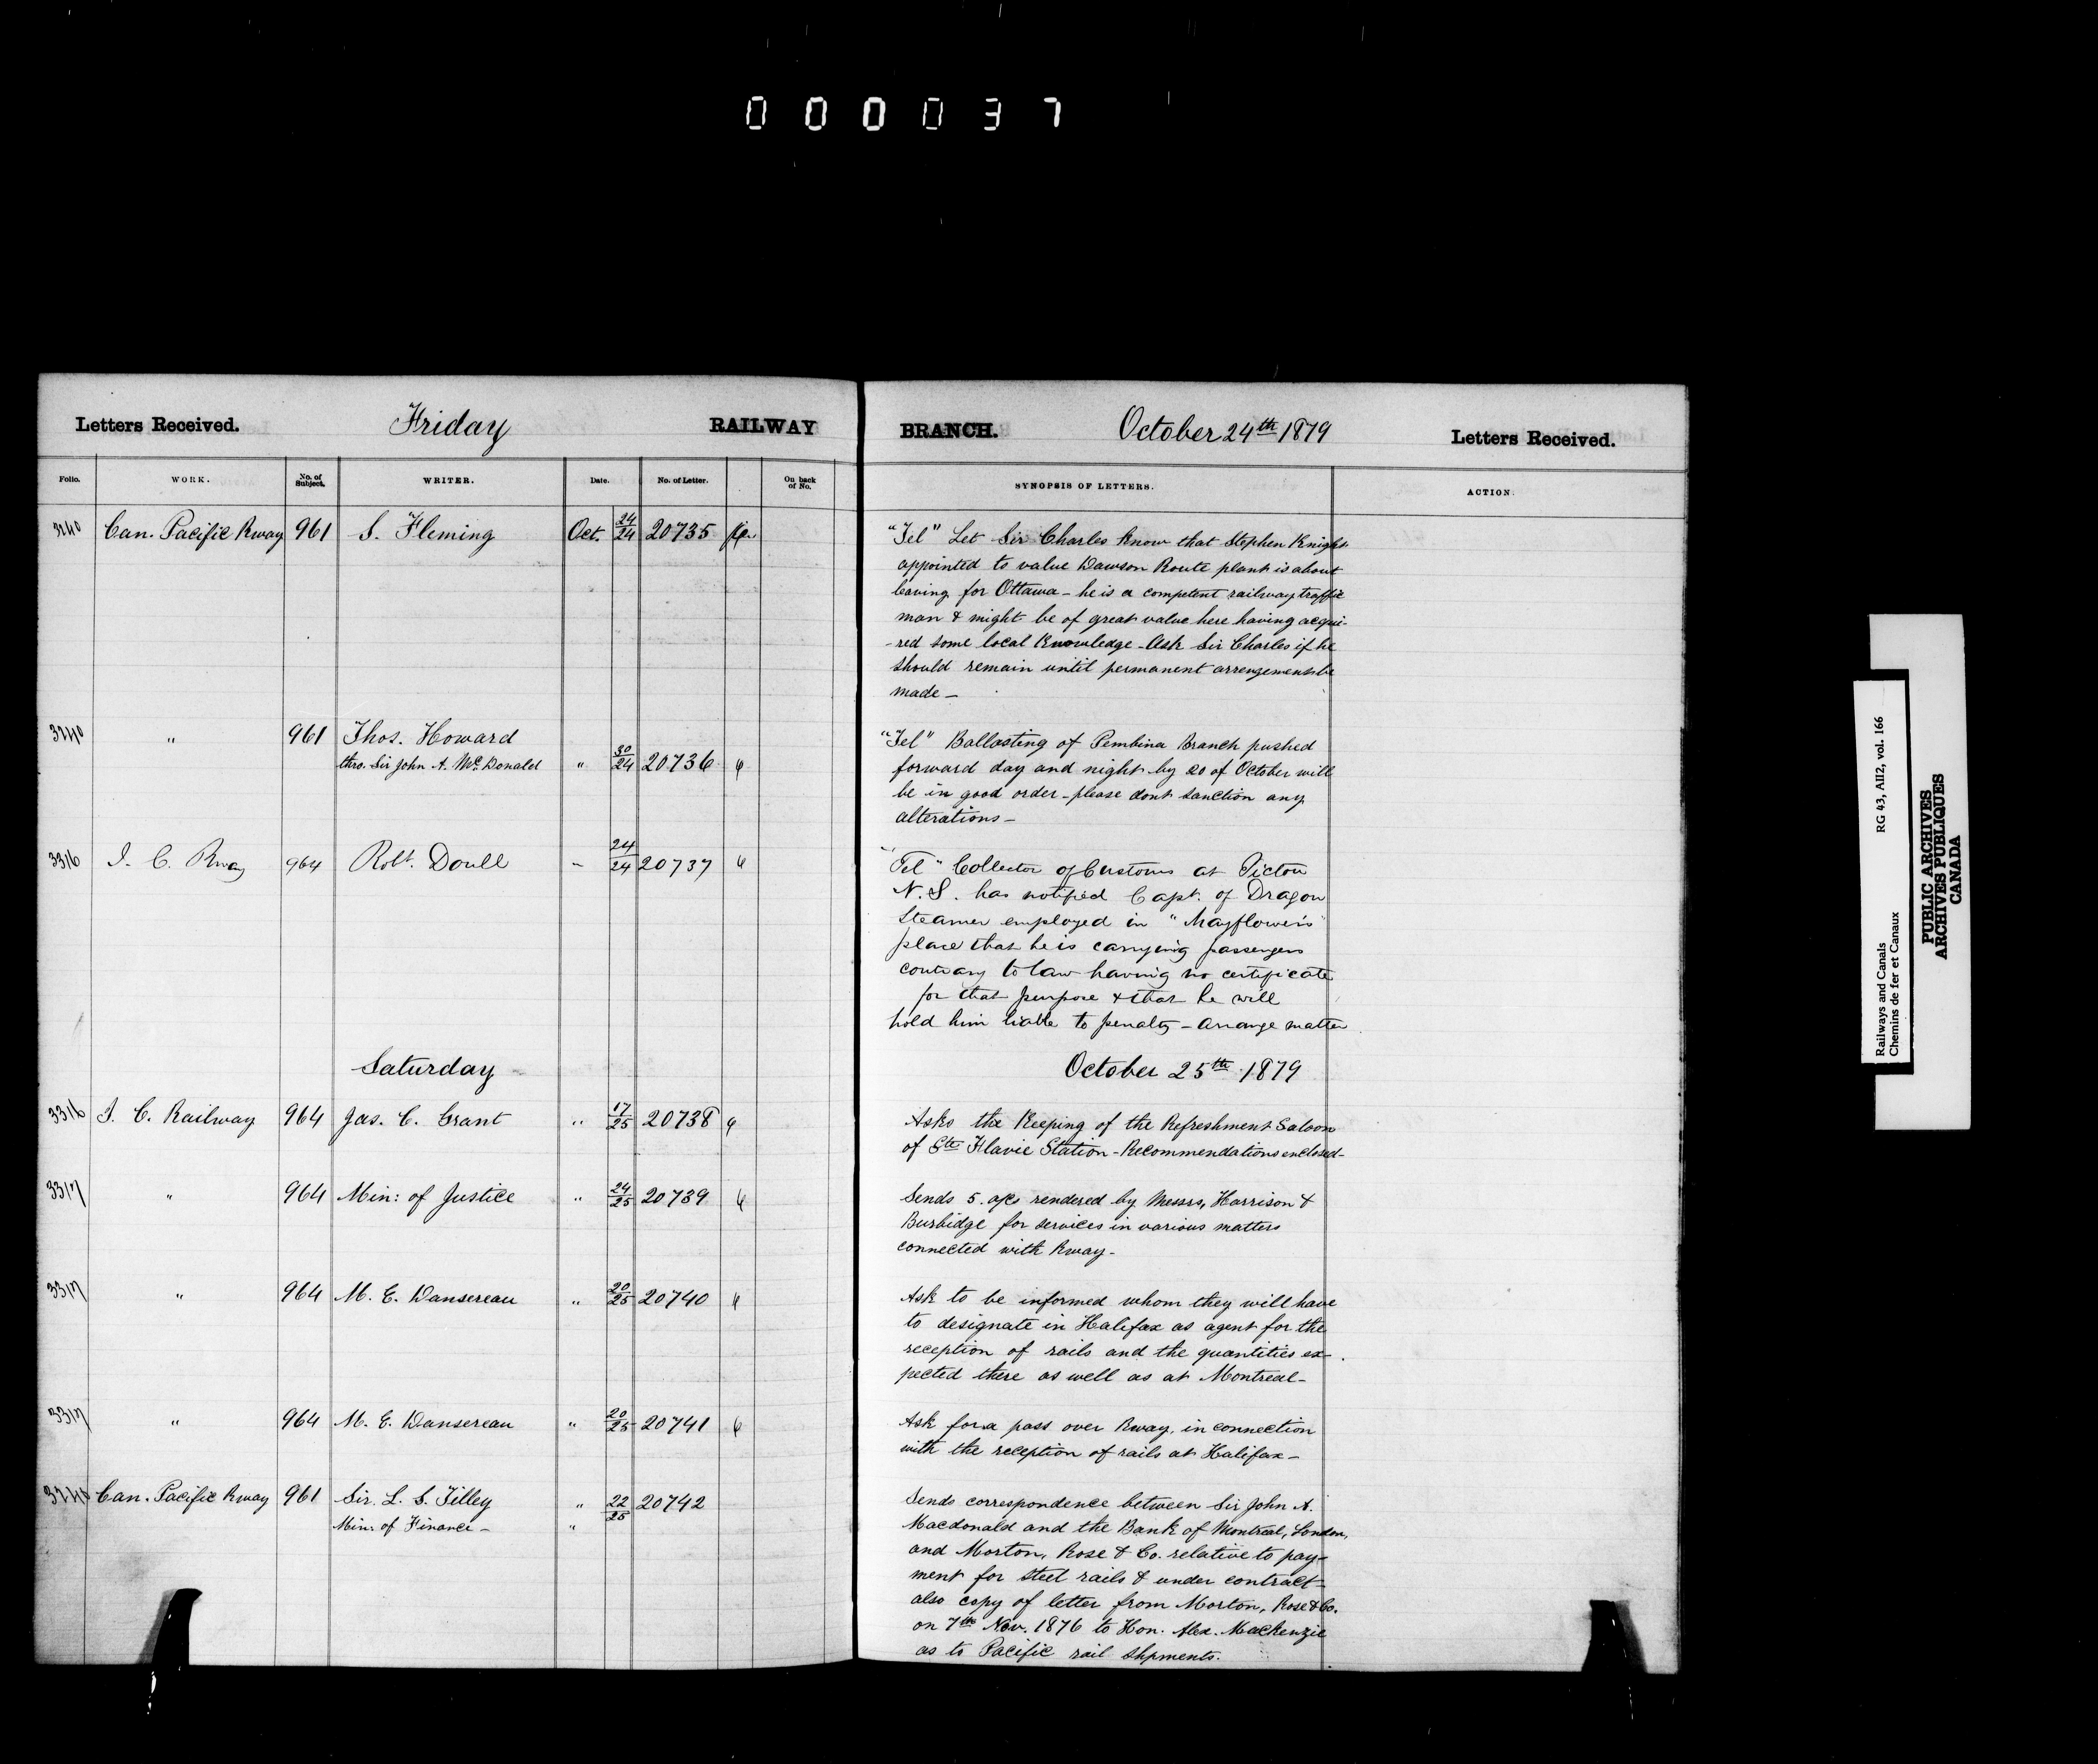 0 0 0 0 3 7
Letters Received. Friday RAILWAY BRANCH. October 24th 1879 Letters Received.
Folio. WORK. No. of Subject. WRITER. Date. No. of Letter. On back of No. SYNOPSIS OF LETTERS. ACTION.
3240 Can. Pacific Rway 961 S. Fleming Oct. 24/24 20735
"Tel" Let Sir Charles know that Stephen Knight
appointed to value Dawson Route plant is about
leaving for Ottawa - he is a competent railway traffic
man & might be of great value here having acqui-
-red some local Knowledge - Ask Sir Charles if he
should remain until permanent arrengements be
made -
3240 " 961 Thos. Howard
thro. Sir John A. McDonald " 30/24 20736
"Tel" Ballasting of Pembina Branch pushed
forward day and night by 20 of October will
be in good order - please dont sanction any
alterations -
3316 I. C. Rway 964 Robt. Doull " 24/24 20737
"Tel" Collector of Customs at Pictou
N.S. has notified Capt. of Dragon
Steamer employed in "Mayflower's"
place that he is carrying passengers
contrary to law having no certificate
for that purpose & that he will
hold him liable to penalty - arrange matter
Saturday October 25th 1879
3316 I. C. Railway 964 Jas. C. Grant " 17/25 20738
Asks the Keeping of the Refreshment Saloon
of Ste Flavie Station - Recommendations enclosed -
3317 " 964 Min: of Justice " 24/25 20739
Sends 5. a/cs rendered by Messrs, Harrison &
Burbidge for services in various matters
connected with Rway -
3317 " 964 M. E. Dansereau " 20/25 20740
Ask to be informed whom they will have
to designate in Halifax as agent for the
reception of rails and the quantities ex-
pected there as well as at Montreal -
3317 " 964 M. E. Dansereau " 20/25 20741
Ask for a pass over Rway, in connection
with the reception of rails at Halifax -
3240 Can. Pacific Rway 961 Sir. L. S. Tilley " 22/25 20742
Min: of Finance - "
Sends correspondence between Sir John A.
Macdonald and the Bank of Montreal, London,
and Morton, Rose & Co. relative to pay-
ment for steel rails & under contract -
also copy of letter from Morton, Rose & Co.
on 7th Nov. 1876 to Hon. Alex. Mackenzie
as to Pacific rail shpments.
Railways and Canals RG 43, AII2, vol. 166
Chemins de fer et Canaux
PUBLIC ARCHIVES
ARCHIVES PUBLIQUES
CANADA